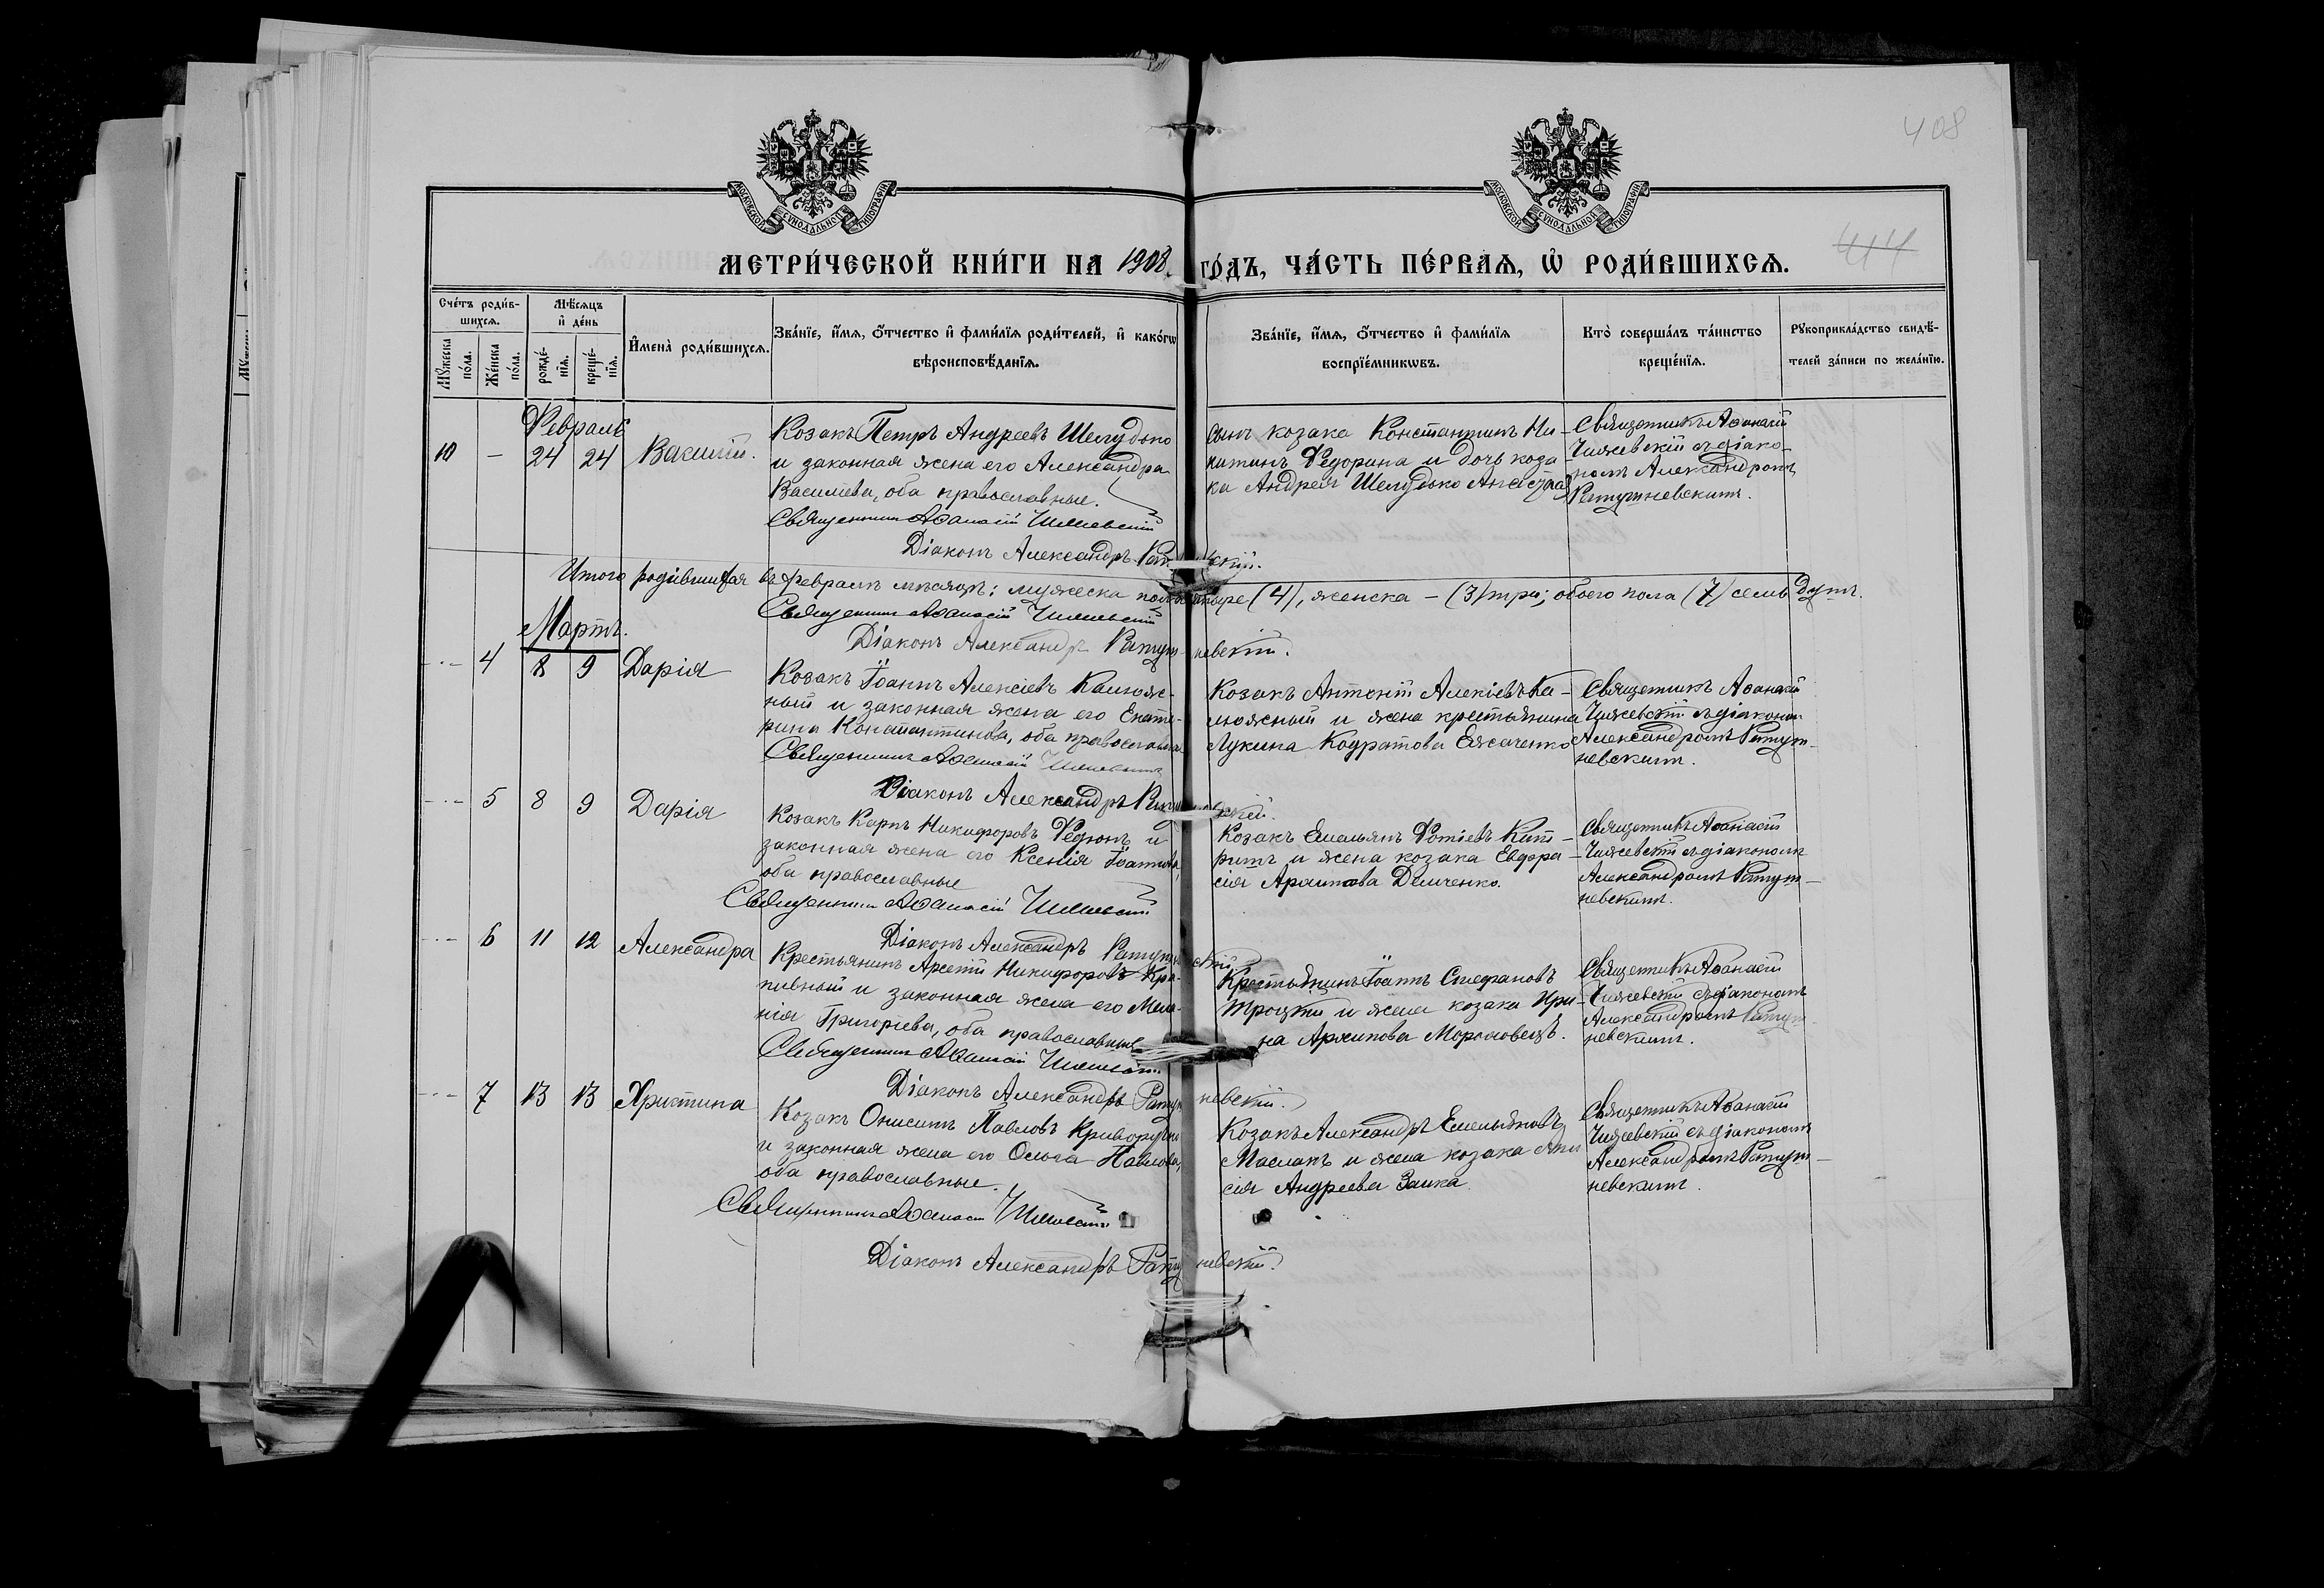 408
МОСКОВСКОЙ СѴНОДАЛЬНОЙ ТИПОГРАФІИ
МОСКОВСКОЙ СѴНОДАЛЬНОЙ ТИПОГРАФІИ
414
МЕТРИ́ЧЕСКОЙ КНИ́ГИ НА 1908 ГО́ДЪ, ЧА́СТЬ ПЕ́РВАЯ, Ѡ РОДИ́ВШИХСЯ.
Сче́тъ роди́в-
шихся.
Мꙋ́жеска по́ла.
Же́нска по́ла.
Мѣ́сяцъ
и҆ де́нь
рожде́-
нїя.
креще́-
нїя.
И҆мена̀ роди́вшихся.
Зва́нїе, и҆́мя, ѻ҆́тчество и҆ фами́лїя роди́телей, и҆ како́гѡ
вѣроисповѣ́данїя.
Зва́нїе, и҆́мя, ѻ҆́тчество и҆ фами́лїя
воспрїе́мникѡвъ.
Кто̀ соверша́лъ та́инство
креще́нїя.
Рꙋкоприкла́дство свидѣ́-
телей за́писи по жела́нїю.
Февраль
10 – 24 24 Василій.
Козакъ Петръ Андреевъ Шелудько
и законная жена его Александра
Василіева, оба православные.
Священникъ Аѳанасій Чижевскій
Діаконъ Александръ
сынъ козака Константинъ Ни-
китинъ Федорина и дочь коза-
ка Андрея Шелудько
Священникъ Аѳанасій
Чижевскій съ діако-
номъ Александромъ
Ратушневскимъ.
Итого родившихся въ февралѣ мѣсяцѣ: мужеска пола четыре (4), женска – (3) три; обоего пола (7) семь душъ.
Священникъ Аѳанасій Чижевскій
Діаконъ Александръ Ратушневскій.
Мартъ.
4 8 9 Дарія
Козакъ Іоаннъ Алексіевъ Калюж-
ный и законная жена его Екате-
рина Константинова, оба православные
Священникъ Аѳанасій Чижевскій
Діаконъ Александръ
Козакъ Антоній Алексіевъ Ка-
люжный и жена крестьянина
Лукина Кодратова Ежаченко
Священникъ Аѳанасій
Чижевскій съ діакономъ
Александромъ Ратуш-
невскимъ.
5 8 9 Дарія
Козакъ Карпъ Никифоровъ Федюнъ и
законная жена его Ксенія Іоаннова,
оба православные
Священникъ Аѳанасій Чижевскій
Діаконъ Александръ
Козакъ Емельянъ Фотіевъ
и жена козака Евфра-
сія Архипова Демченко.
Священникъ Аѳанасій
Чижевскій съ діакономъ
Александромъ Ратуш-
невскимъ.
6 11 12 Александра
Крестьянинъ Арсеній Никифоровъ Кро-
пивный и законная жена его Мела-
нія Григорьева, оба православные
Священникъ Аѳанасій Чижевскій
Діаконъ Александръ Ратушневскій.
Крестьянинъ Іоаннъ Стефановъ
Троцкій и жена козака Ири-
на Архипова
Священникъ Аѳанасій
Чижевскій съ діакономъ
Александромъ Ратуш-
невскимъ.
7 13 13 Христина
Козакъ Онисимъ Павловъ
и законная жена его Ольга Павлова,
оба православные.
Священникъ Аѳанасій Чижевскій
Діаконъ Александръ Ратушневскій.
Козакъ Александръ Емельяновъ
Маслакъ и жена козака
Андреева Заика
Священникъ Аѳанасій
Чижевскій съ діакономъ
Александромъ Ратуш-
невскимъ.